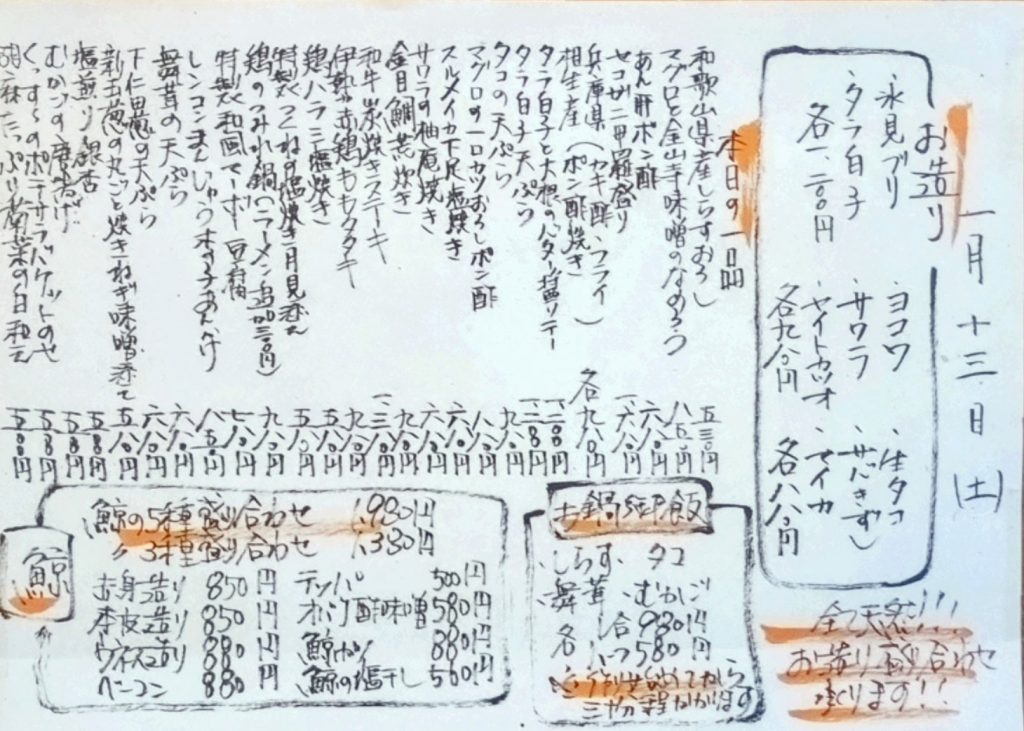 一月十三日(土)
お造り
、氷見ブリ
、タラ白子
各一、二〇〇円
、ヨコワ
、サワラ
、ヤイトカツオ
各九八〇円
、生タコ
、サバ(きずし)
、マイカ
各八八〇円
全天然!!!
お造り盛り合わせ
承ります!!
本日の一品
和歌山県産しらすおろし 五三〇円
マグロと金山寺味噌のなめろう 八五〇円
あん肝ポン酢 六八〇円
セコガニ甲羅盛り 一、六八〇円
兵庫県(カキ酢、フライ
相生産(ポン酢焼き) 各九八〇円
タラ白子と大根のバター醤油ソテー 一、二〇〇円
タラ白子天ぷら 一、二〇〇円
タコの天ぷら 九八〇円
マグロの一口カツおろしポン酢 八八〇円
スルメイカ下足塩焼き 六八〇円
サワラの柚庵焼き 六八〇円
金目鯛荒炊き 九八〇円
和牛炭焼きステーキ
伊勢赤鶏ももタタキ 九八〇円
鶏ハラミ塩焼き 五八〇円
特製つくねの塩焼き月見添え
鶏のつみれ鍋(ラーメン追加三〇〇円) 九八〇円
特製和風マーボー豆腐
レンコンまんじゅうきの子あんかけ 八五〇円
舞茸の天ぷら 六八〇円
下仁田葱の天ぷら 六八〇円
新玉葱の丸ごと焼きねぎ味噌添え 五八〇円
塩煎り銀杏
むかごの唐揚げ
くっすーのポテサラバケットのせ
胡麻たっぷり菊菜の白和え
土鍋御飯
、しらす、タコ
、舞茸、むかご
各一合980円
〃しつ580円
☆今作り始めてから
三十分程かかります
鯨
鯨の5種盛り合わせ 1,980円
〃 3種盛り合わせ 1,380円
赤身造り 850円
本皮造り 850円
ウネス造り 880円
ベーコン 880円
テッパ 500円
オバケ酢味噌 580円
鯨カツ 880円
鯨の塩干し 500円